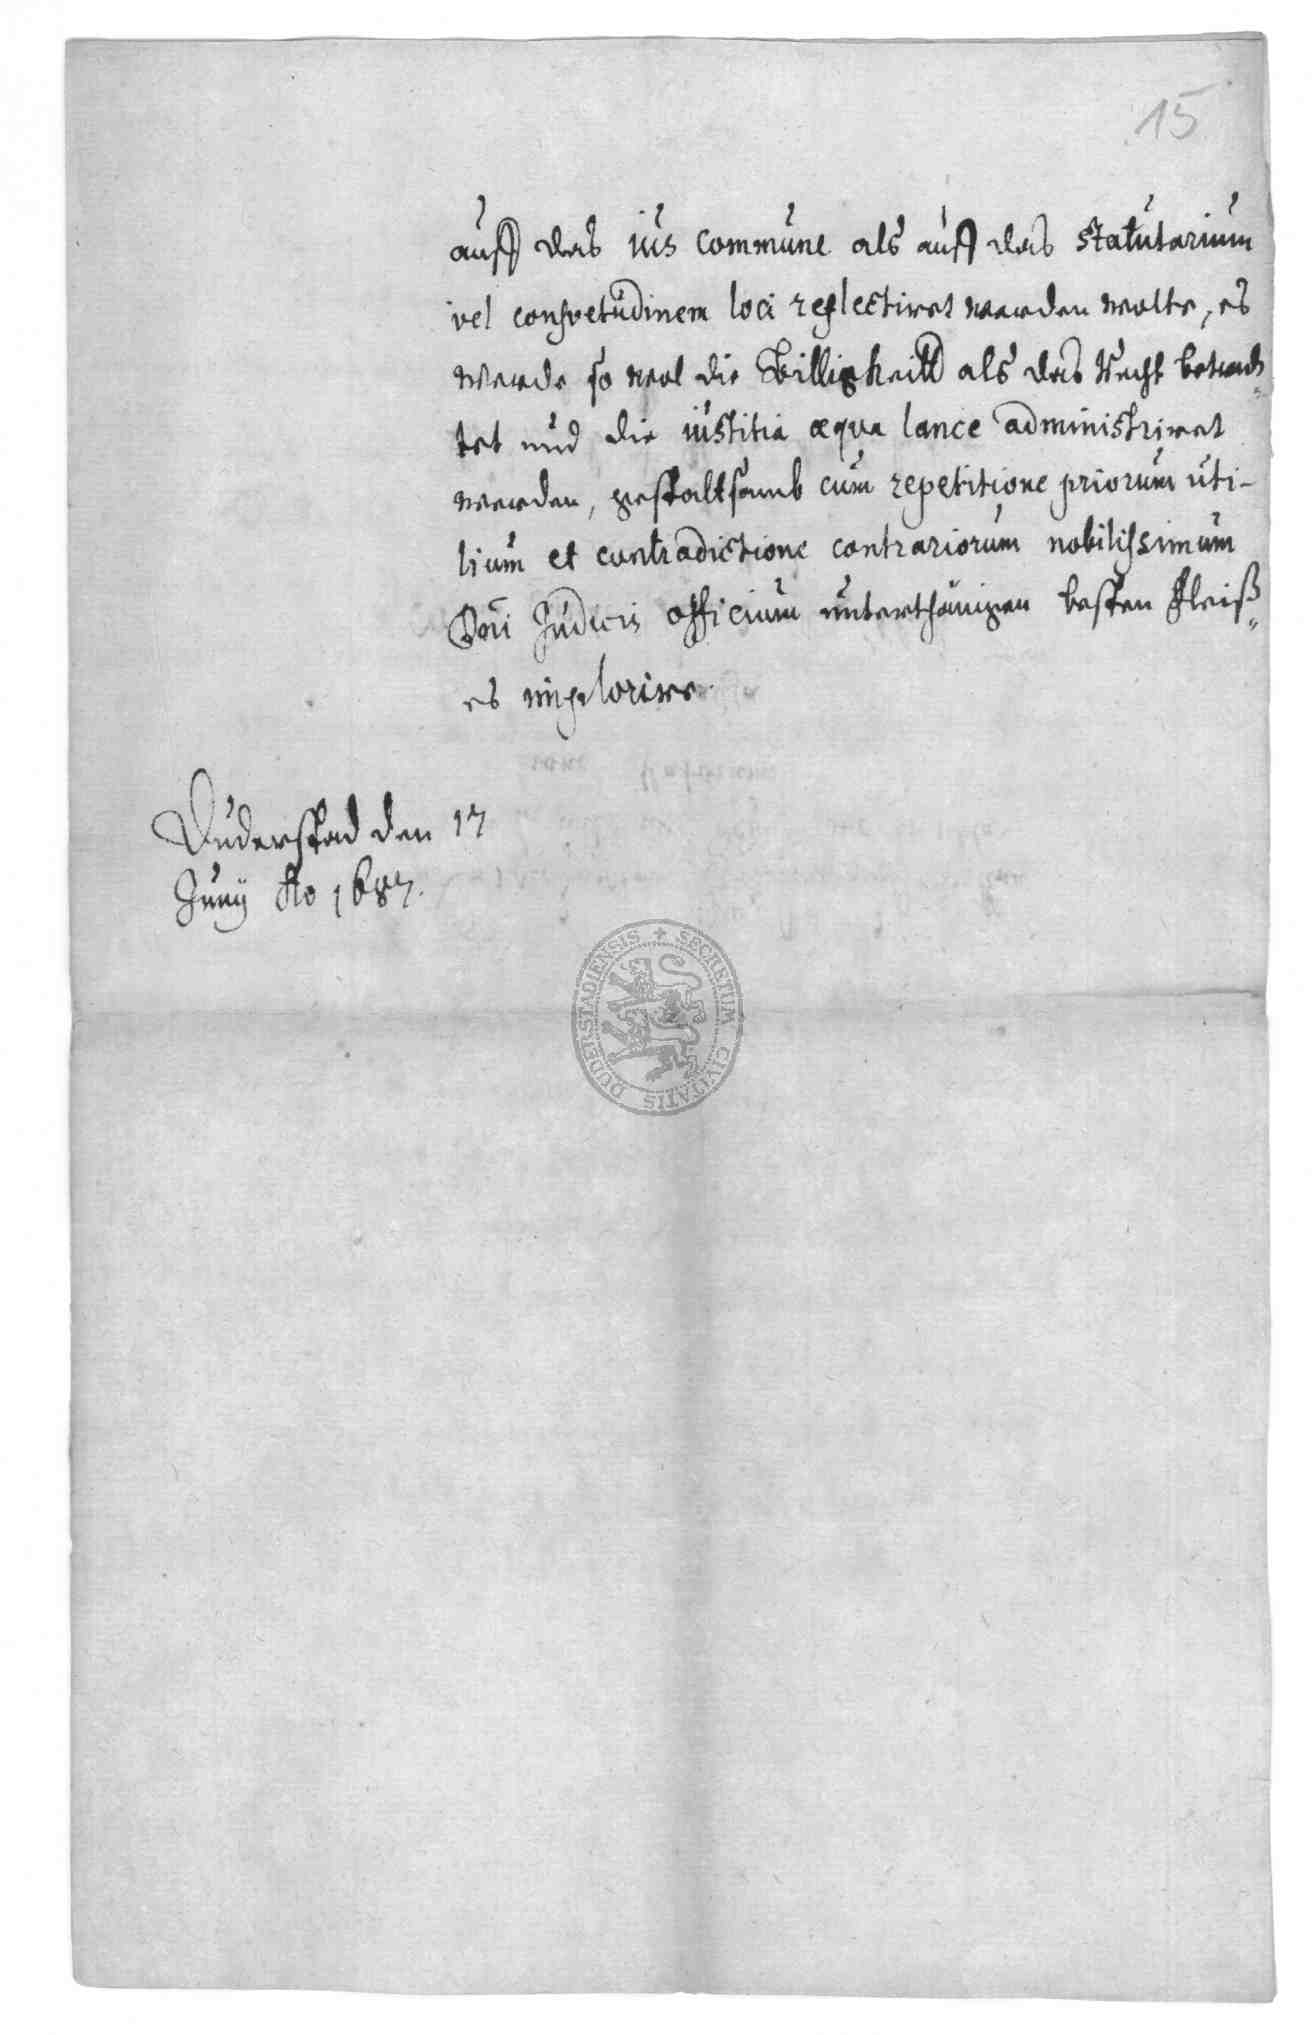 15
auff das ius commune als auff das statutarium
vel consvetudinem loci reflectiret werden wolte, es
werde so wol die Billigkeitt als das Recht betrach-
tet und die iustitia æqua lance administriret
werden, gestaltsamb cum repetitione priorum uti-
lium et contradictione contrariorum nobilissimum
Dni Judicis officium unterthänigen besten Fleiß-
es implorire.
Duderstad den 17
Junij Ao 1687.
SECRETUM CIVITATIS DUDERSTADIENSIS